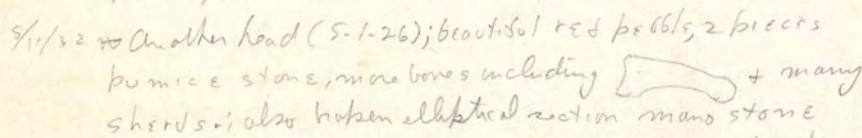 5/11/32 Another head (5-1-26); beautiful red pebble, 2 pieces
pumice stone, more bones including + many
sherds.; also broken elliptical section mano stone